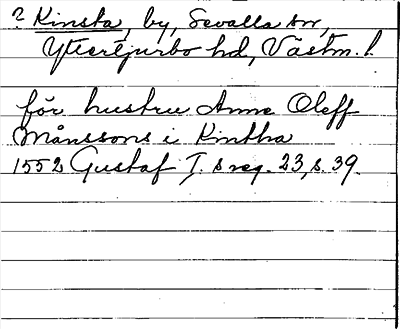 ? Kinsta, by, Sevalla sn,
Yttertjurbo hd, Västm. l.
för hustru Anne Oleff
Månssons i Kintha
1552 Gustaf I. s reg. 23, s. 39.